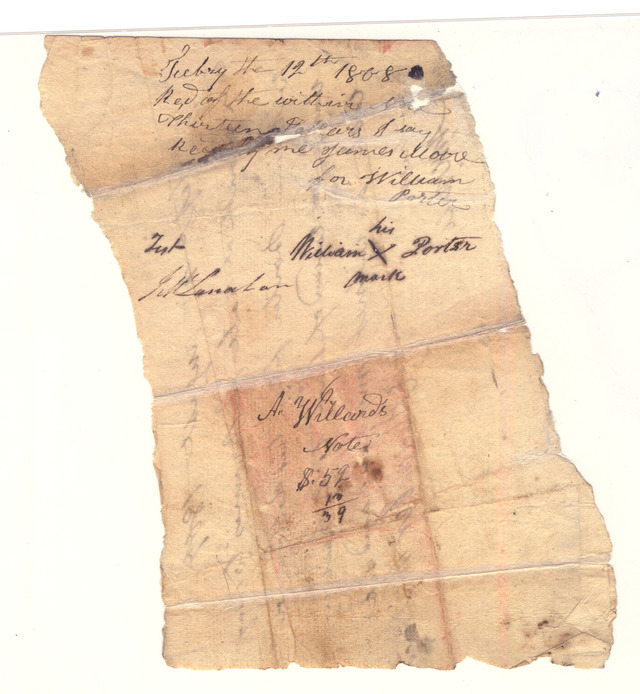 Feebry the 12th 1808
Recd of the within Note
Thirteen Dollars I say
Recd by me James Moore
for William
Porter
his
Test William X Porter
mark
A. Willards
Note
$. 52
13
39